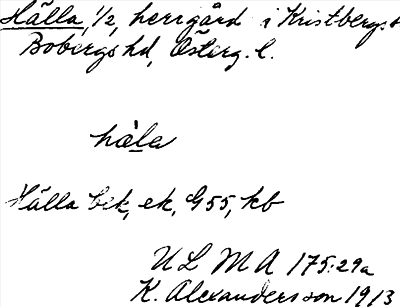 Hälla, 1/2, herrgård i Kristbergs
Bobergs hd, Österg. l.
hàla
Hälla bek, ek, G55, kb
ULMA 175:29a
K. Alexandersson 1913